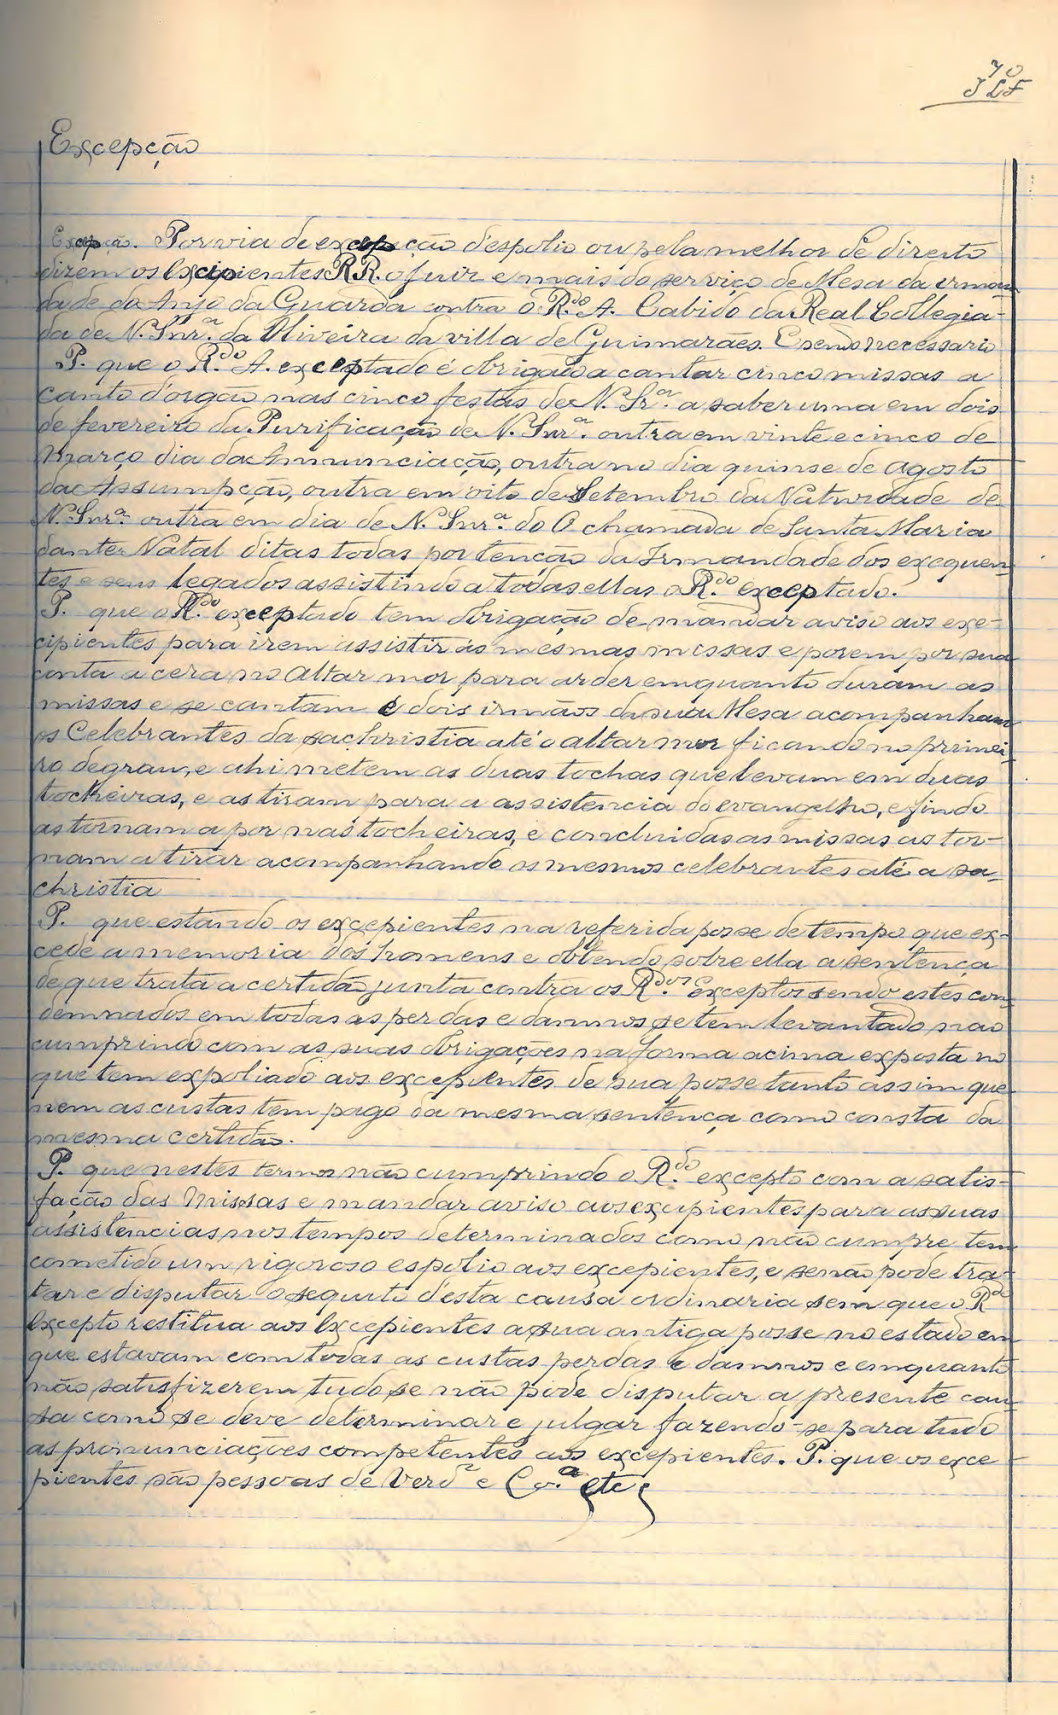 70
JLF
Excepção
Excepção. Por via de excepção d'espolio ou pela melhor de direito
dizem os Excipientes RR. o juiz e mais do serviço de Mesa da irman-
dade do Anjo da Guarda contra o R.do A. Cabido da Real Collegia-
da de N. Snr.a da Oliveira da villa de Guimarães. E sendo necessario
P. que o R.do A. exceptado é obrigado a cantar cinco missas a
canto d'orgão nas cinco festas de N. Sr.a a saber uma em dois
de fevereiro da Purificação de N. Snr.a. outra em vinte e cinco de
Março dia da Annunciação, outra no dia quinse de Agosto
da Assumpção, outra em oito de Setembro da Natividade de
N. Snr.a outra em dia de N. Snr.a do O chamada de Santa Maria
dante Natal ditas todas por tenção da Irmandade dos exequen-
tes e seus legados assistindo a todas ellas o R.do exceptado.
P. que o R.do exceptado tem obrigação de mandar aviso aos exe-
cipientes para irem assistir ás mesmas missas e porem por sua
conta a cera no Altar mor para arder emquanto duram as
missas e se cantam e dois irmãos da sua Mesa acompanham
os Celebrantes da sachristia até o altar mor ficando no primei-
ro degrau, e ahi metem as duas tochas que levam em duas
tocheiras, e as tiram para a assistencia do evangelho, e findo
as tornam a por nas tocheiras, e concluidas as missas as tor-
nam a tirar acompanhando os mesmos celebrantes até a sa-
christia
P. que estando os excepientes na referida posse de tempo que ex-
cede a memoria dos homens e obtendo sobre ella a sentença
de que trata a certidão junta contra os R.dos exceptos sendo estes con-
demnados em todas as perdas e damnos se tem levantado não
cumprindo com as suas obrigações na forma acima exposta no
que tem expoliado aos excepientes de sua posse tanto assim que
nem as custas tem pago da mesma sentença como consta da
mesma certidão.
P. que nestes termos não cumprindo o R.do excepto com a satis-
fação das Missas e mandar aviso aos excipientes para as suas
assistencias nos tempos determinados como não cumpre tem
cometido um rigoroso espolio aos excepientes, e se não pode tra-
tar e disputar o seguito d'esta causa ordinaria sem que o R.do
Excepto restitua aos Excepientes a sua antiga posse no estado em
que estavam com todas as custas perdas e damnos e emquanto
não satisfizerem tudo se não pode disputar a presente cau-
sa como se deve determinar e julgar fazendo-se para tudo
as pronunciações competentes aos excepientes. P. que os exce
pientes são pessoas de Verd.e e Co.a etc